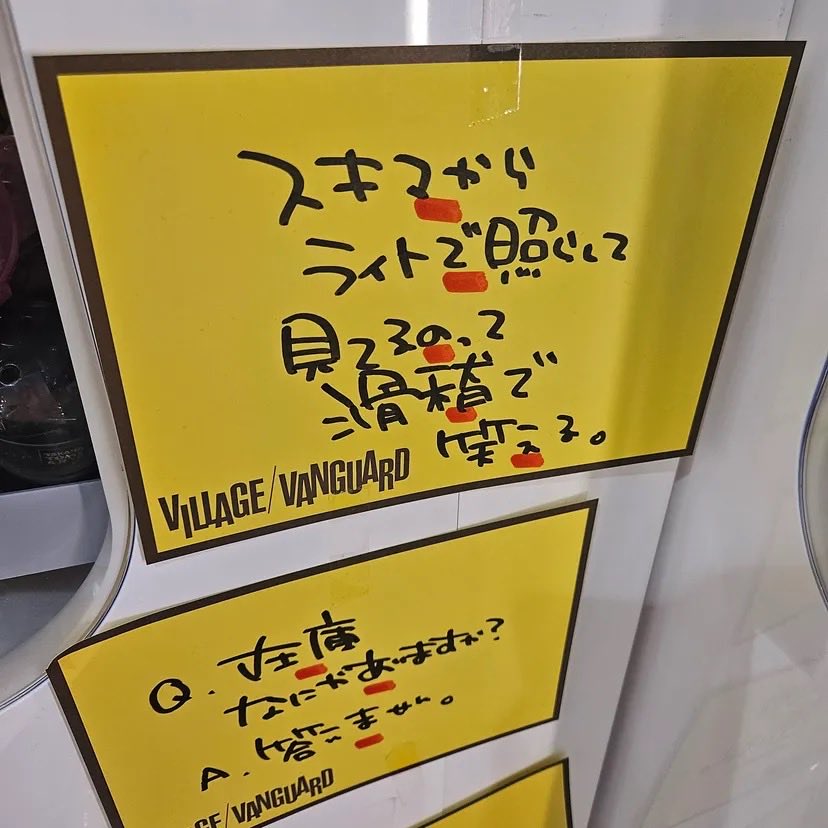 スキマから
ライトで照らして
見てるのって
滑稽で
笑える。
VILLAGE/VANGUARD
Q. 在庫
なにがありますか?
A. 答いません。
GE/VANGUARD